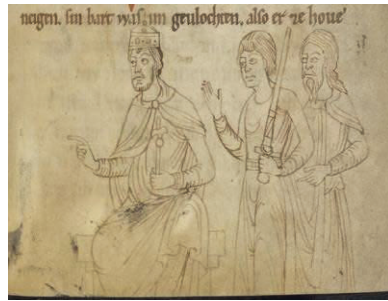 neigen. sin bart was im geulochten. also er ze houe